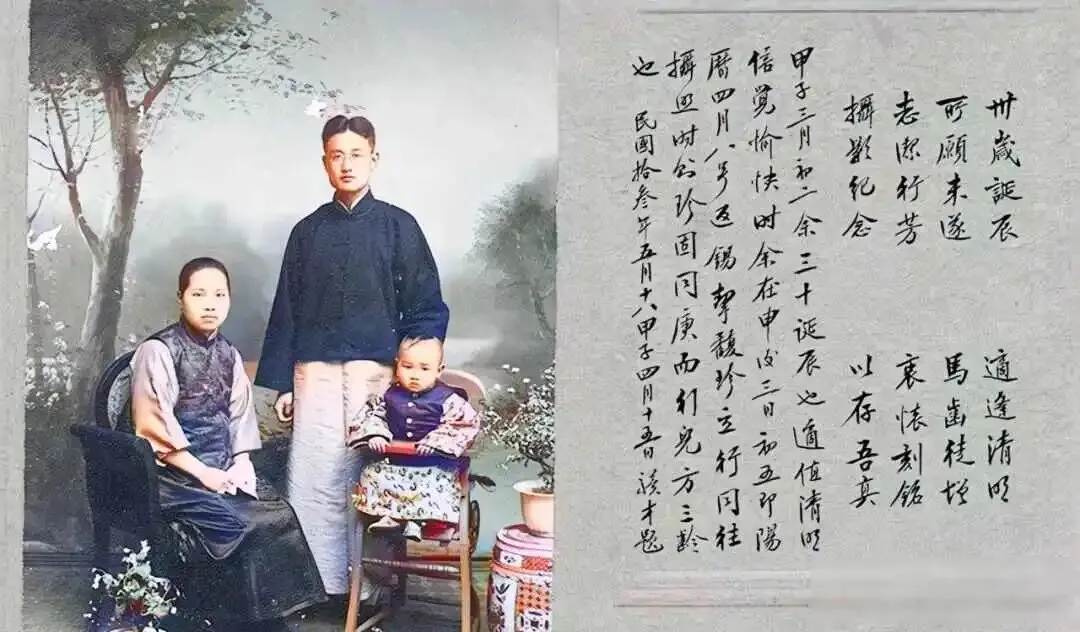 卅歲誕辰 適逢清明
所願未遂 馬齒徒增
志潔行芳 衷懷刻銘
攝影紀念 以存吾真
甲子三月初二余三十誕辰也適值清明
覺愉快时余在申三日初五即陽
曆四月八号返錫挈馥珍立行同往
攝照时珍固同庚而行兒方三齡
也 民國拾叁年五月十八甲子四月十五日才題